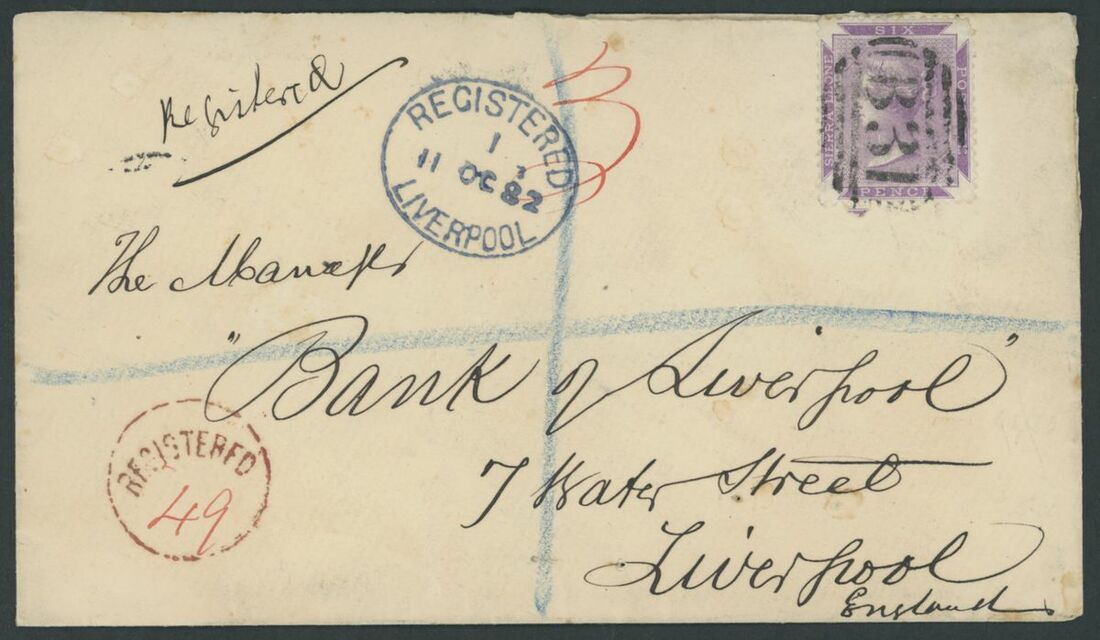 Registered
REGISTERED
1
11 OC 82
LIVERPOOL
3
SIX
SIERRA LEONE
PO
PENCE
B31
The Manager
"Bank of Liverpool"
7 Water Street
Liverpool
England
REGISTERED
49